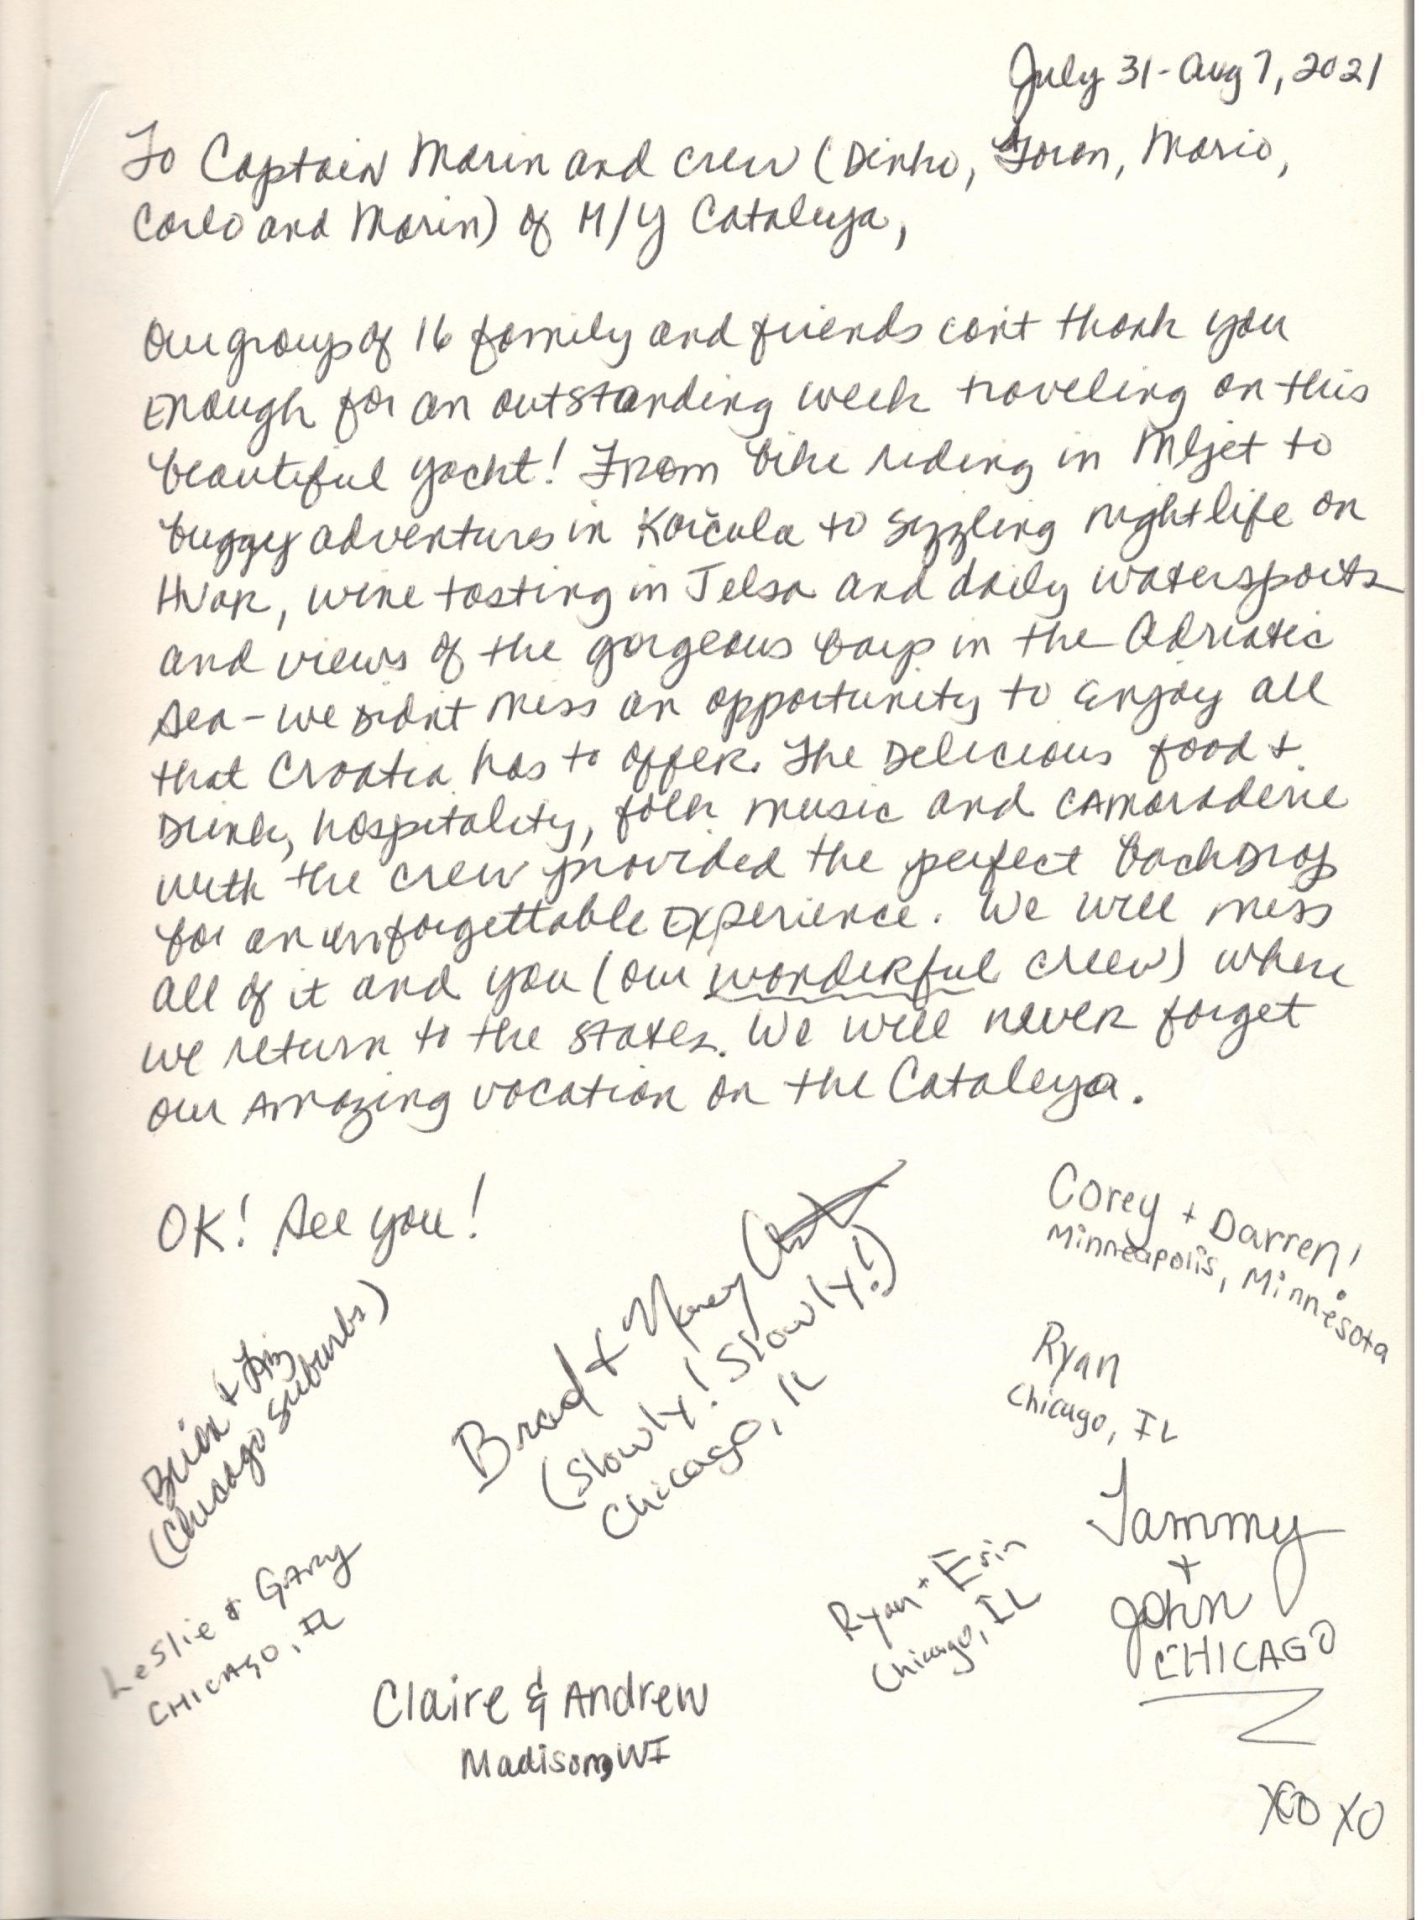 July 31-Aug 7, 2021
To Captain Marin and crew (Dinho, Goran, Mario,
Carlo and Marin) of M/Y Cataleya,
Our group of 16 family and friends can't thank you
Enough for an outstanding week traveling on this
beautiful yacht! From bike riding in Mljet to
buggy adventures in Korčula to sizzling nightlife on
HVAR, wine tasting in Jelsa and daily watersports
and views of the gorgeous bays in the Adriatic
Sea - we didn't miss an opportunity to Enjoy all
that Croatia has to offer. The Delicious food &
Drinks, hospitality, folk music and CAmaraderie
with the crew provided the perfect backdrop
for an unforgettable Experience. We will miss
all of it and you (our wonderful crew) when
we return to the States. We will never forget
our Amazing vacation on the Cataleya.
OK! See you!
Corey + Darren!
Minneapolis, Minnesota
Brad + Nancy
(Slowly! Slowly!)
Chicago, IL
Ryan
Chicago, IL
Brian +
(Chicago Suburbs)
Tammy
+
John
CHICAGO
Ryan + Erin
Chicago, IL
Leslie & Gary
CHICAGO, IL
Claire & Andrew
Madison, WI
XOXO